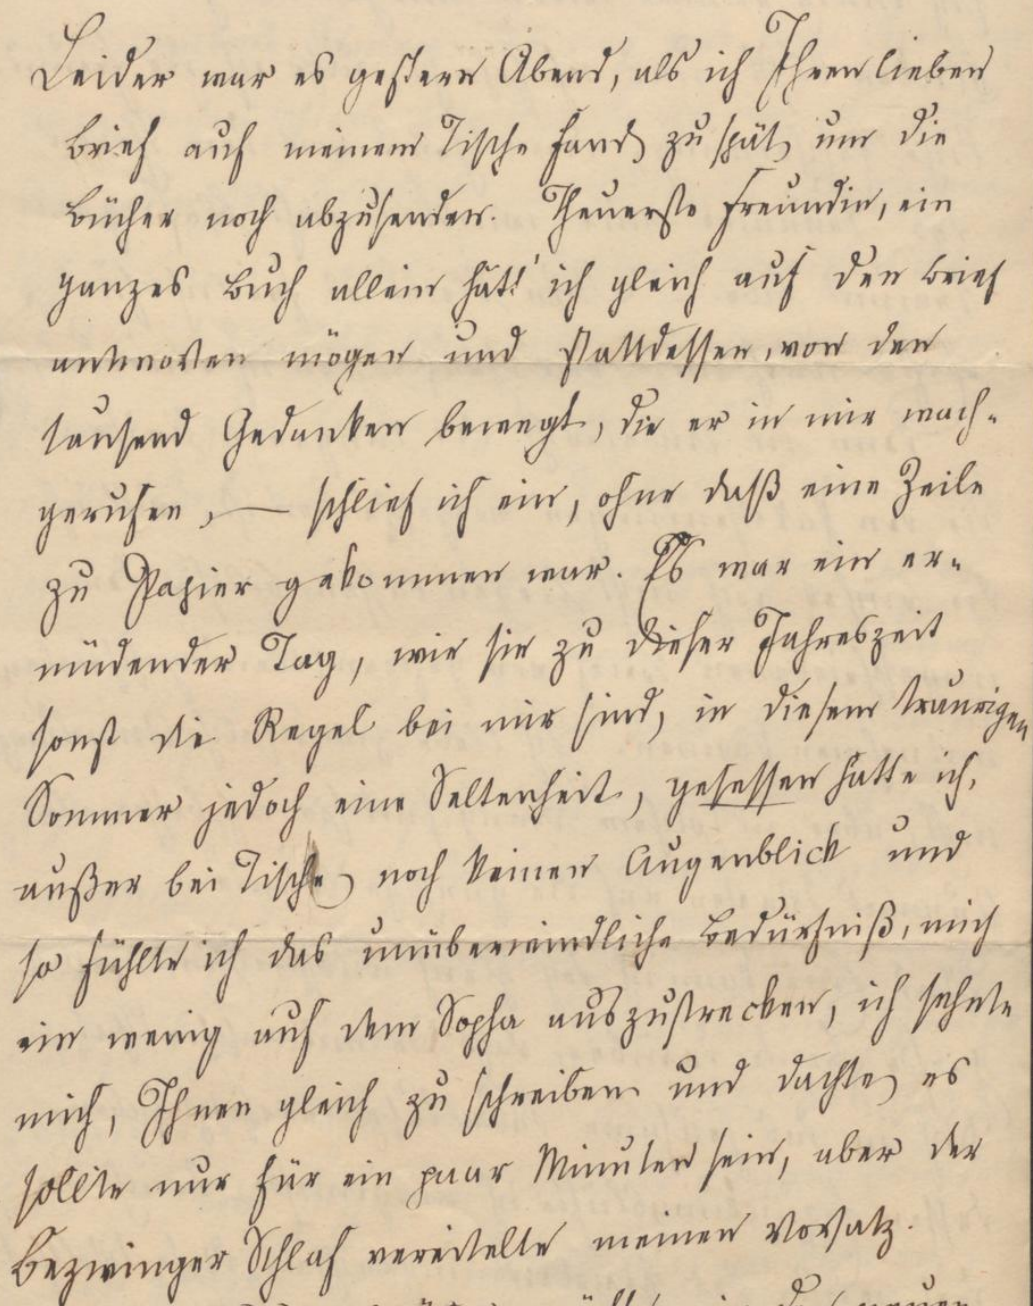 Leider war es gestern Abend, als ich Ihren lieben
Brief auf meinem Tische fand, zu spät, um die
Bücher noch abzusenden. Theuerste Freundin, ein
ganzes Buch allein hätt' ich gleich auf den Brief
antworten mögen und stattdessen, von den
tausend Gedanken bewegt, die er in mir wach-
gerufen, — schlief ich ein, ohne daß eine Zeile
zu Papier gekommen war. Es war ein er-
müdender Tag, wie sie zu dieser Jahreszeit
sonst die Regel bei mir sind, in diesem traurigen
Sommer jedoch eine Seltenheit, gesessen hatte ich,
außer bei Tische, noch keinen Augenblick und
so fühlte ich das unüberwindliche Bedürfniß, mich
ein wenig auf dem Sopha auszustrecken, ich sehnte
mich, Ihnen gleich zu schreiben und dachte, es
sollte nur für ein paar Minuten sein, aber der
Bezwinger Schlaf vereitelte meinen Vorsatz.